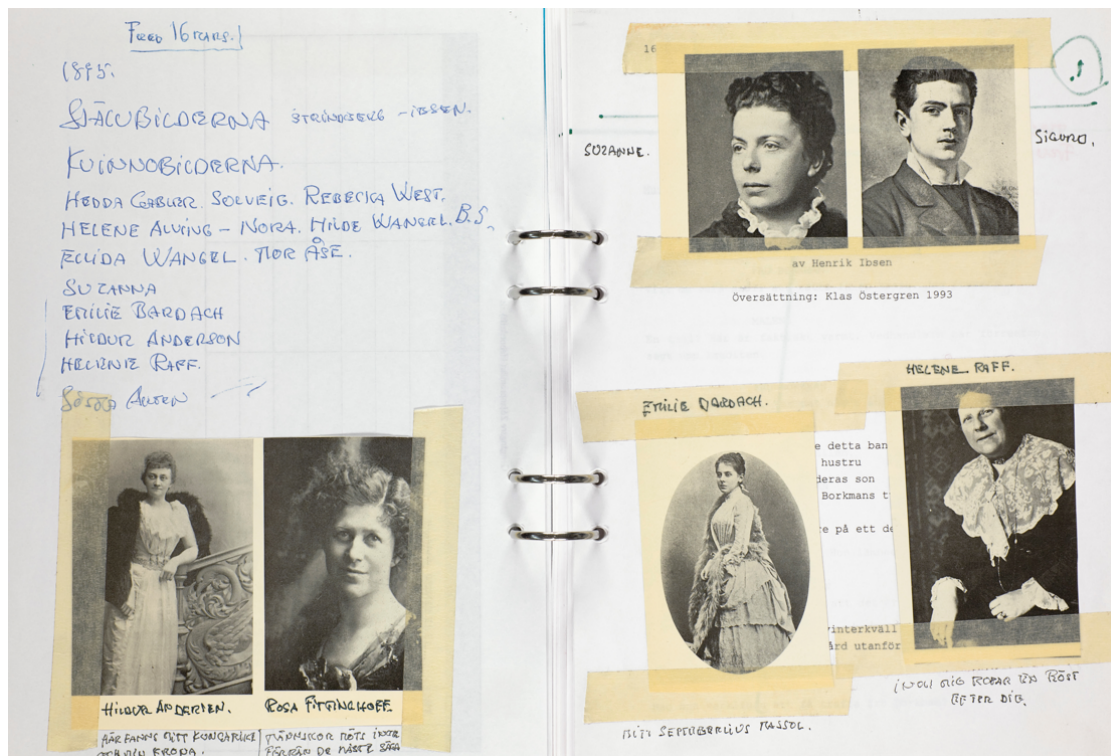 FRED 16 MARS.
1895.
SJÄLVBILDERNA STRINDBERG – IBSEN.
KVINNOBILDERNA.
HEDDA GABLER. SOLVEIG. REBECKA WEST.
HELENE ALVING – NORA. HILDE WANGEL. B.S.
ELLIDA WANGEL. MOR ÅSE.
SUZANNA
EMILIE BARDACH
HILDUR ANDERSON
HELENE RAFF.
HILDUR ANDERSEN.
ROSA FITTINGHOFF.
HÄR FANNS MITT KUNGARIKE
OCH MIN KRONA.
MÄNNISKOR MÖTS INTE
FÖRRÄN DE MÅSTE SÄGA
16
SUZANNE.
SIGURD.
av Henrik Ibsen
Översättning: Klas Östergren 1993
EMILIE BARDACH.
HELENE RAFF.
e detta ban
hustru
deras son
Borkmans t
e på ett de
vinterkväll
ård utanför
MITT SEPTEMBERLJUS
INOM MIG ROPAR EN RÖST
EFTER DIG.